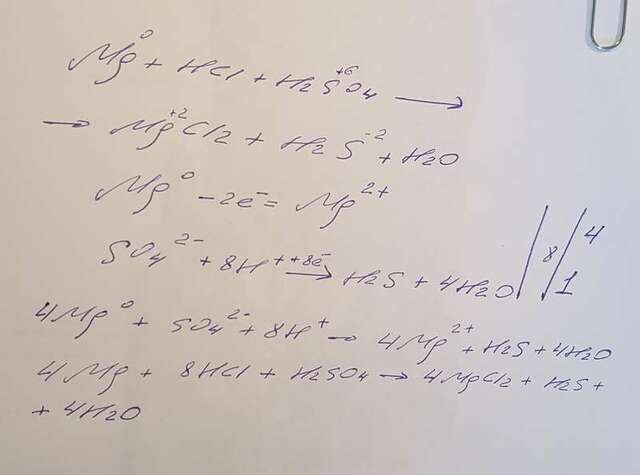 Mg⁰ + HCl + H₂S⁺⁶O₄ →
→ Mg⁺²Cl₂ + H₂S⁻² + H₂O
Mg⁰ - 2e⁻ = Mg²⁺
4
SO₄²⁻ + 8H⁺ +8e⁻→ H₂S + 4H₂O | 8 / 1
4Mg⁰ + SO₄²⁻ + 8H⁺ → 4Mg²⁺ + H₂S + 4H₂O
4Mg + 8HCl + H₂SO₄ → 4MgCl₂ + H₂S +
+ 4H₂O